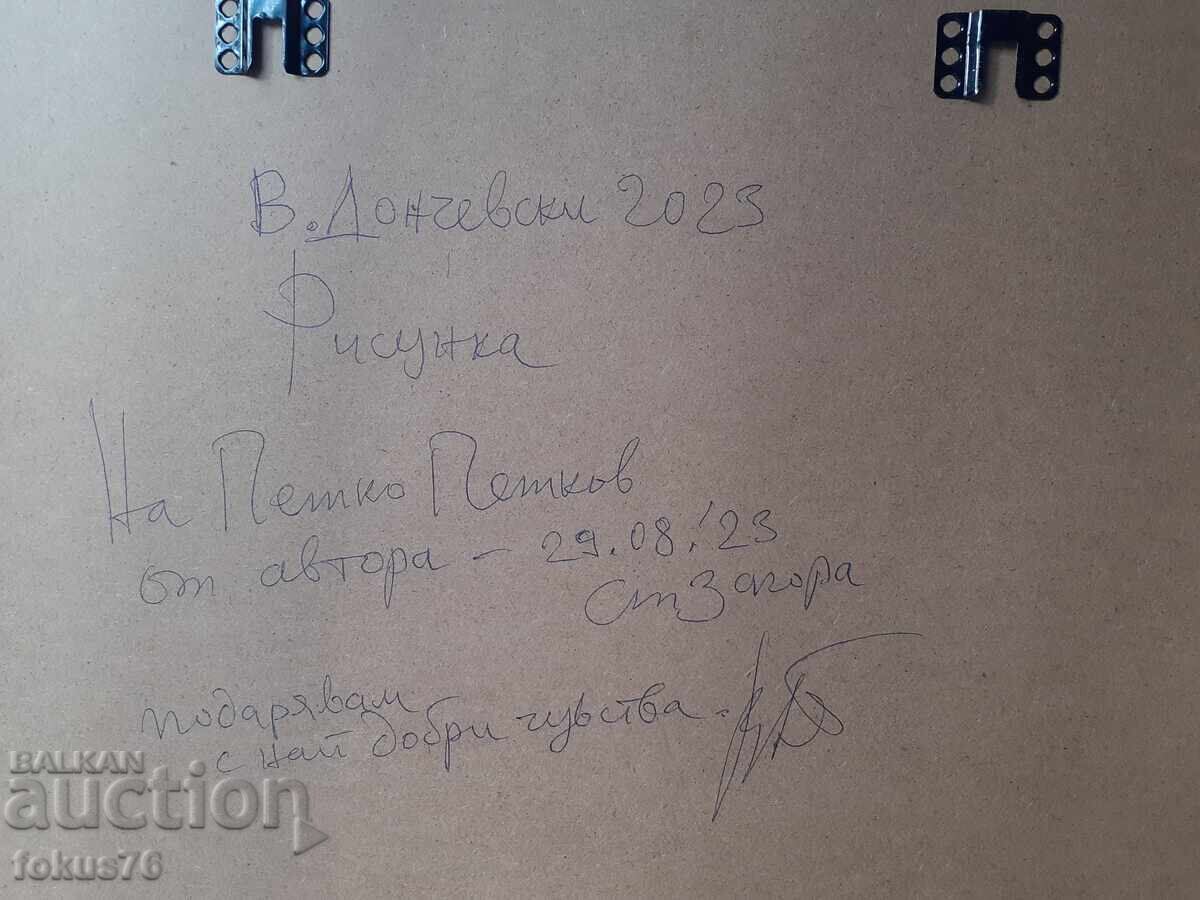 В. Дончевски 2023
Рисунка
На Петко Петков
от автора - 29.08.'23
Ст Загора
подарявам
с най добри чувства.
BALKAN
auction
fokus76